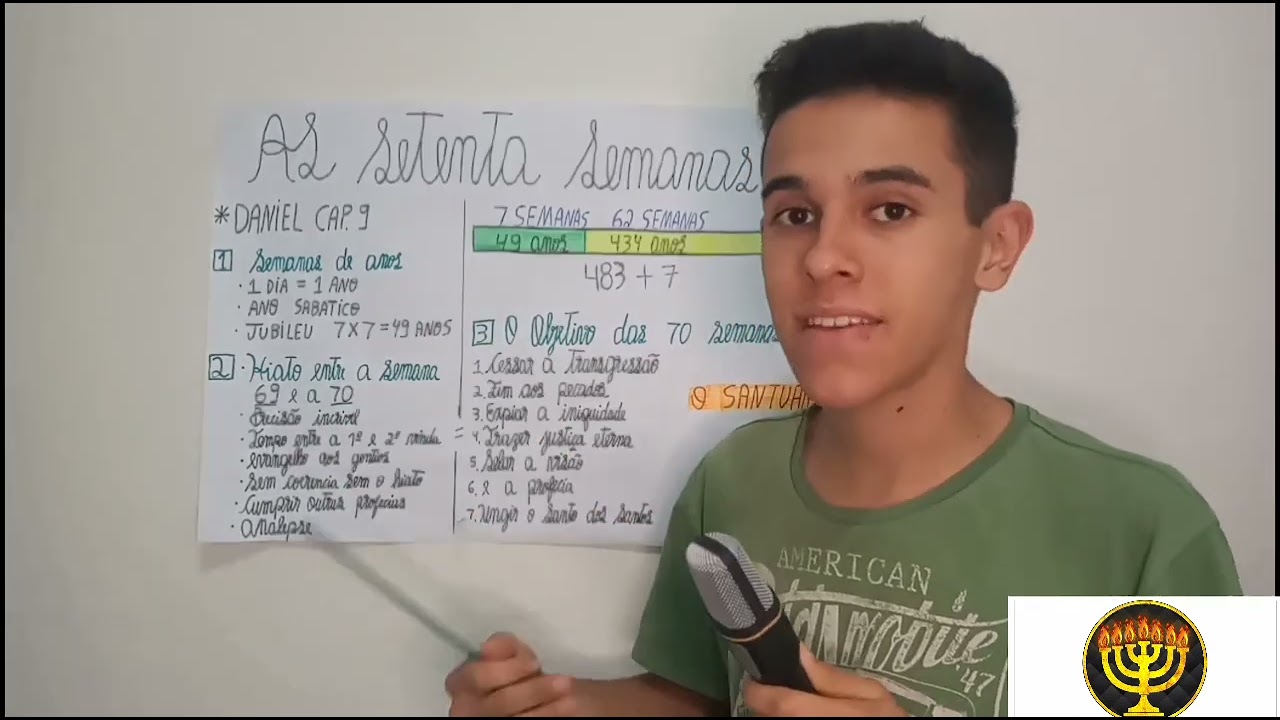 As setenta semanas
* DANIEL CAP. 9
1 Semanas de anos
· 1 DIA = 1 ANO
· ANO SABATICO
· JUBILEU 7X7=49 ANOS
2 · Hiato entre a semana
69 e a 70
· Decisão incrivel
· Tempo entre a 1ª e 2ª vinda =
· evangelho aos gentios
· Sem coerencia sem o hiato
· Cumprir outras profecias
· Analepse
7 SEMANAS 62 SEMANAS
49 anos 434 anos
483 + 7
3 O Objetivo das 70 semanas
1. Cessar a transgressão
2. Fim aos pecados
3. Expiar a iniquidade
4. Trazer justiça eterna
5. Selar a visão
6. e a profecia
7. Ungir o santo dos santos
O SANTUAR
AMERICAN
'47